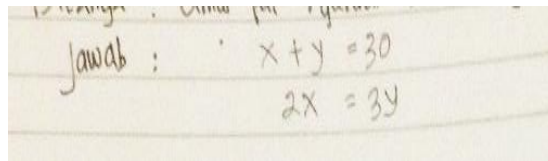 Jawab : x + y = 30
2x = 3y